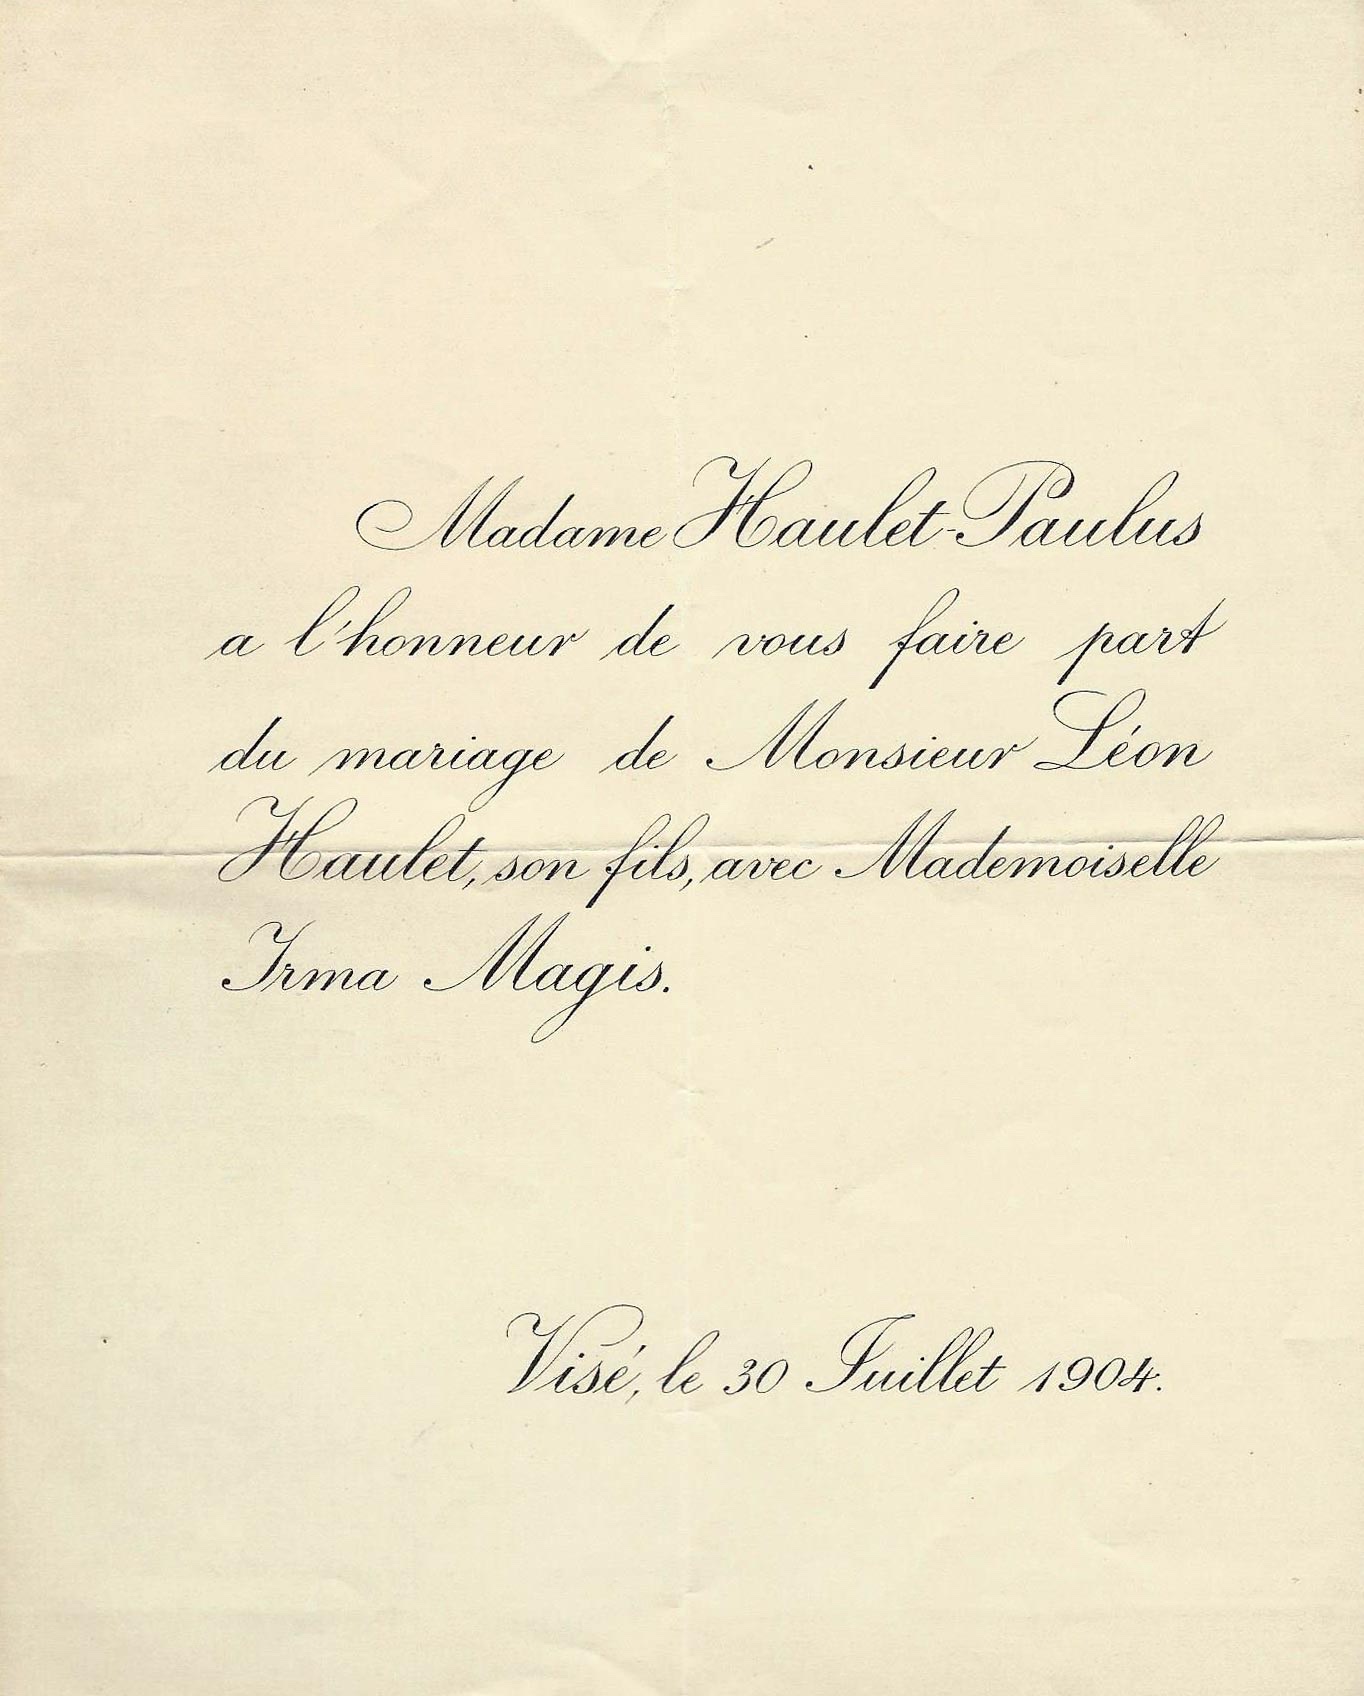 Madame Haulet-Paulus
a l'honneur de vous faire part
du mariage de Monsieur Léon
Haulet, son fils, avec Mademoiselle
Irma Magis.
Visé, le 30 Juillet 1904.